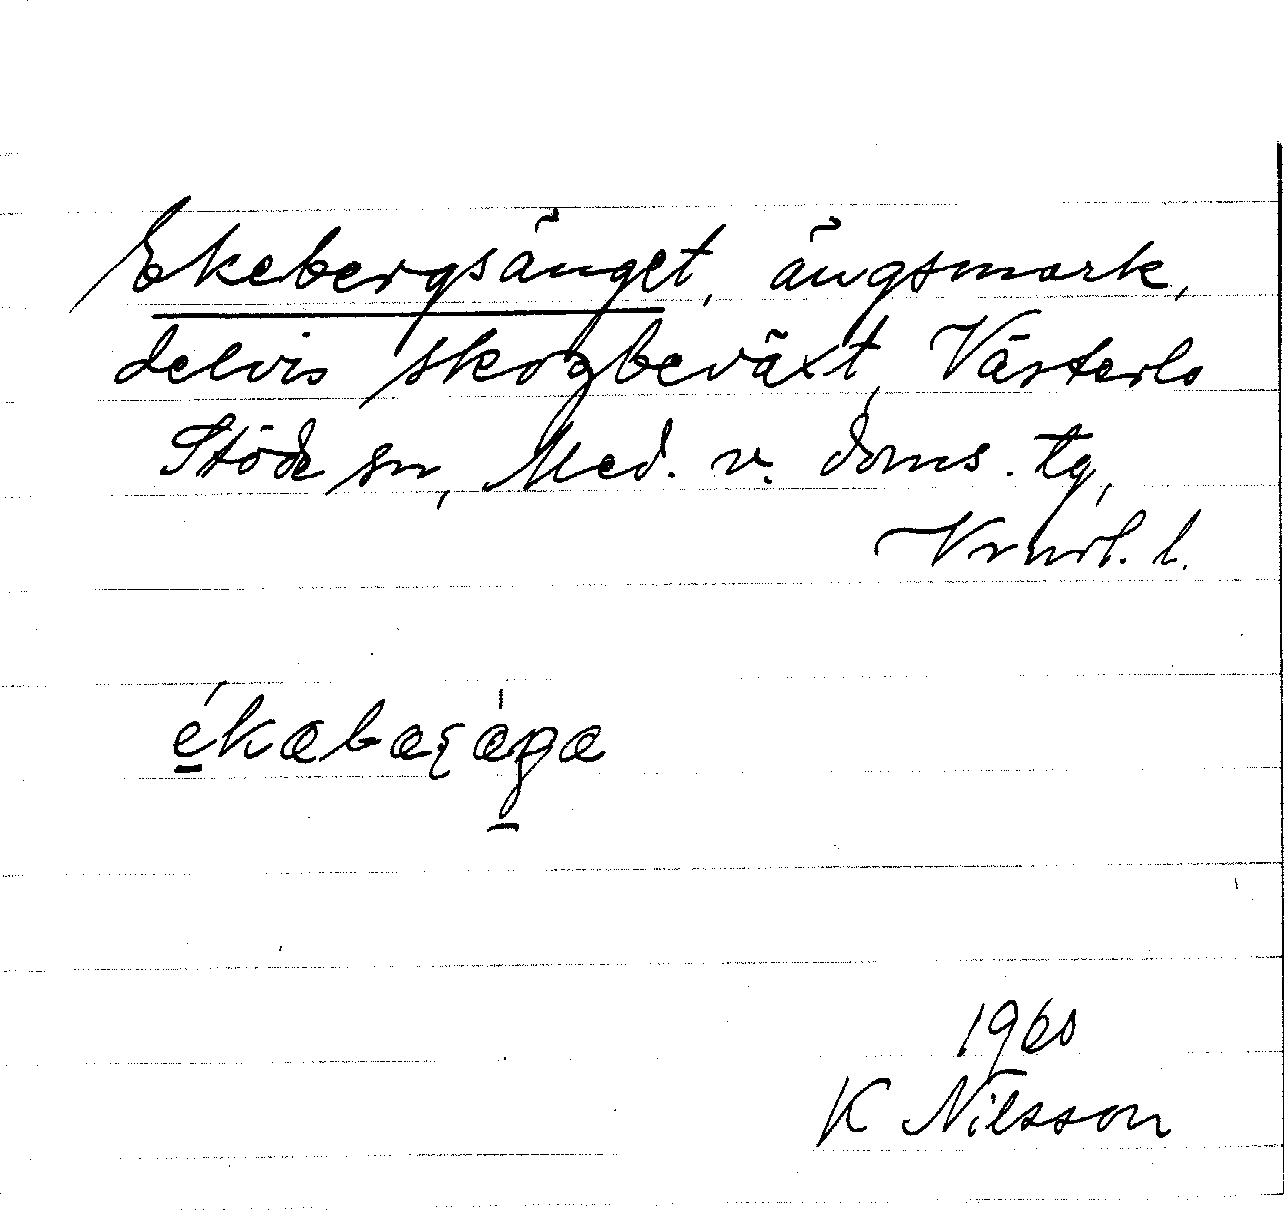 Ekebergsänget, ängsmark,
delvis skogbeväxt, Västerlo
Stöde sn, Med. v. doms. tg,
Vrnrl. l.
1960
K Nilsson